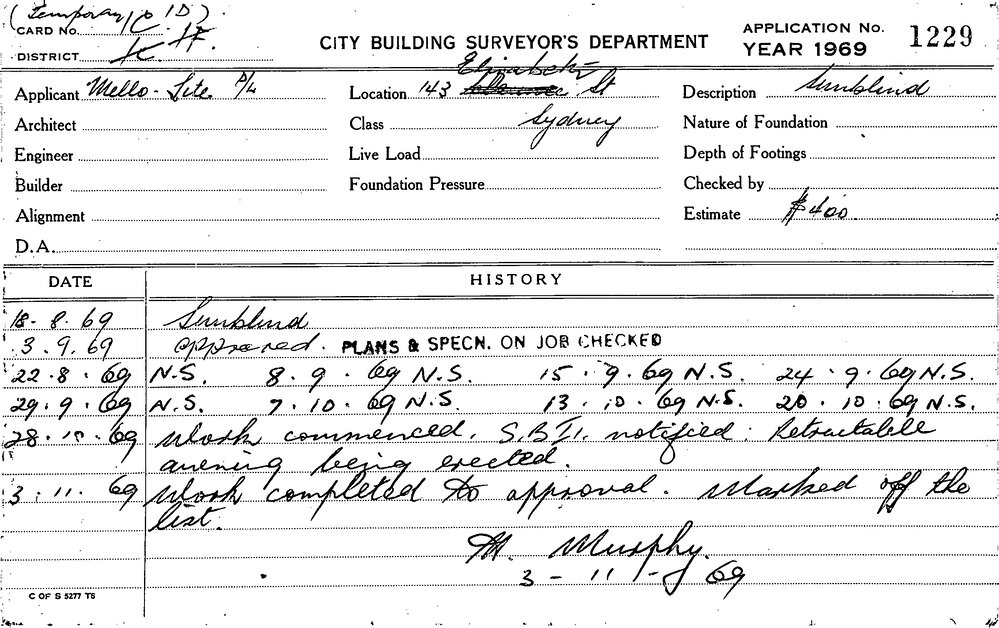 (Temporary 10 1D).
CARD No.
DISTRICT K. H.
CITY BUILDING SURVEYOR'S DEPARTMENT
APPLICATION No. 1229
YEAR 1969
Applicant Mello-Lite P/L
Location 143 Elizabeth St
Description Sunblind
Architect
Class Sydney
Nature of Foundation
Engineer
Live Load
Depth of Footings
Builder
Foundation Pressure
Checked by
Alignment
Estimate $400.
D.A.
DATE HISTORY
18. 8. 69 Sunblind
3. 9. 69 approved. PLANS & SPECN. ON JOB CHECKED
22. 8. 69 N.S. 8. 9. 69 N.S. 15. 9. 69 N.S. 24. 9. 69 N.S.
29. 9. 69 N.S. 7. 10. 69 N.S. 13. 10. 69 N.S. 20. 10. 69 N.S.
28. 10. 69 Work commenced. S.B.I. notified. Retractable
awning being erected.
3. 11. 69 Work completed to approval. Marked off the
list.
M. Murphy.
3 - 11 - 69
C OF S 5277 TS